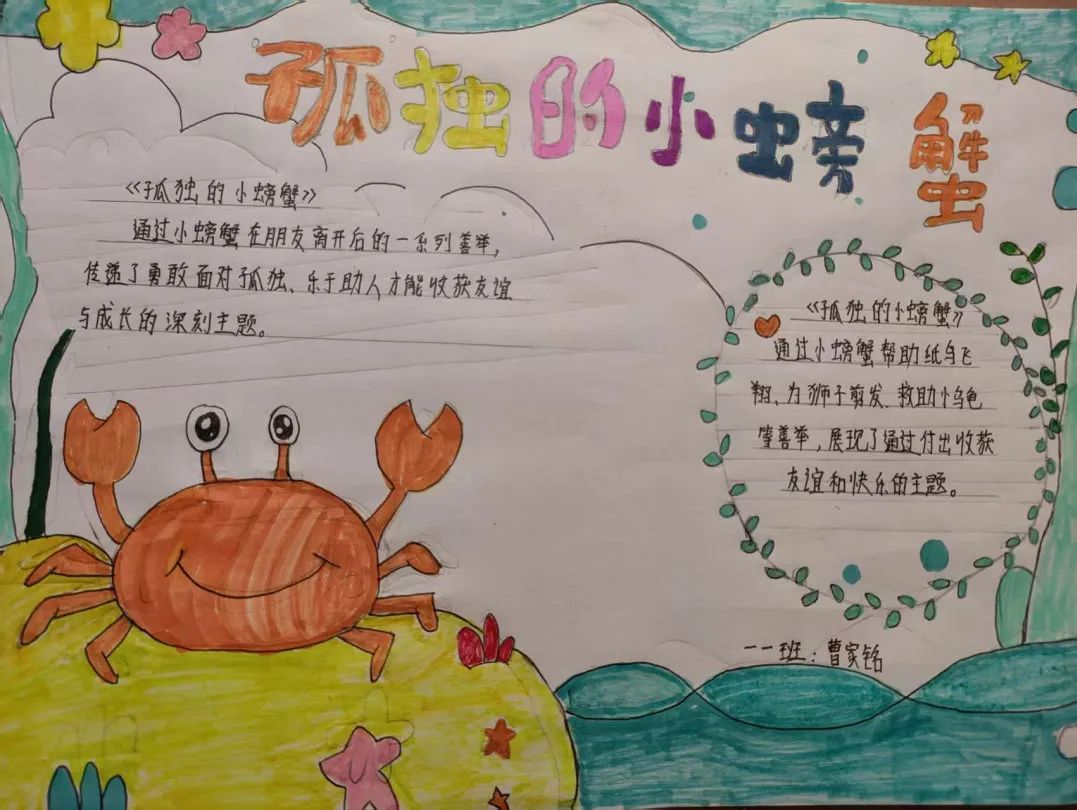 孤独的小螃蟹
《孤独的小螃蟹》
通过小螃蟹在朋友离开后的一系列善举，
传递了勇敢面对孤独、乐于助人才能收获友谊
与成长的深刻主题。
《孤独的小螃蟹》
通过小螃蟹帮助纸鸟飞
翔、为狮子剪发、救助小乌龟
等善举，展现了通过付出收获
友谊和快乐的主题。
一一班：曹家铭